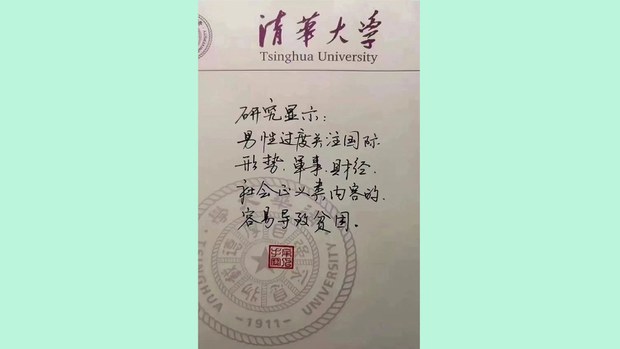 清华大学
Tsinghua University
研究显示：
男性过度关注国际
形势、军事、财经、
社会正义类内容的，
容易导致贫困。
TSINGHUA UNIVERSITY
—1911—